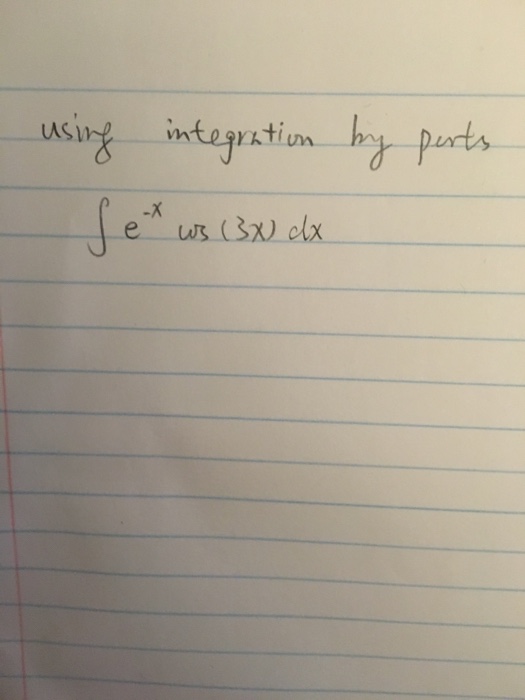 using integration by parts
∫ e^{-x} cos (3x) dx